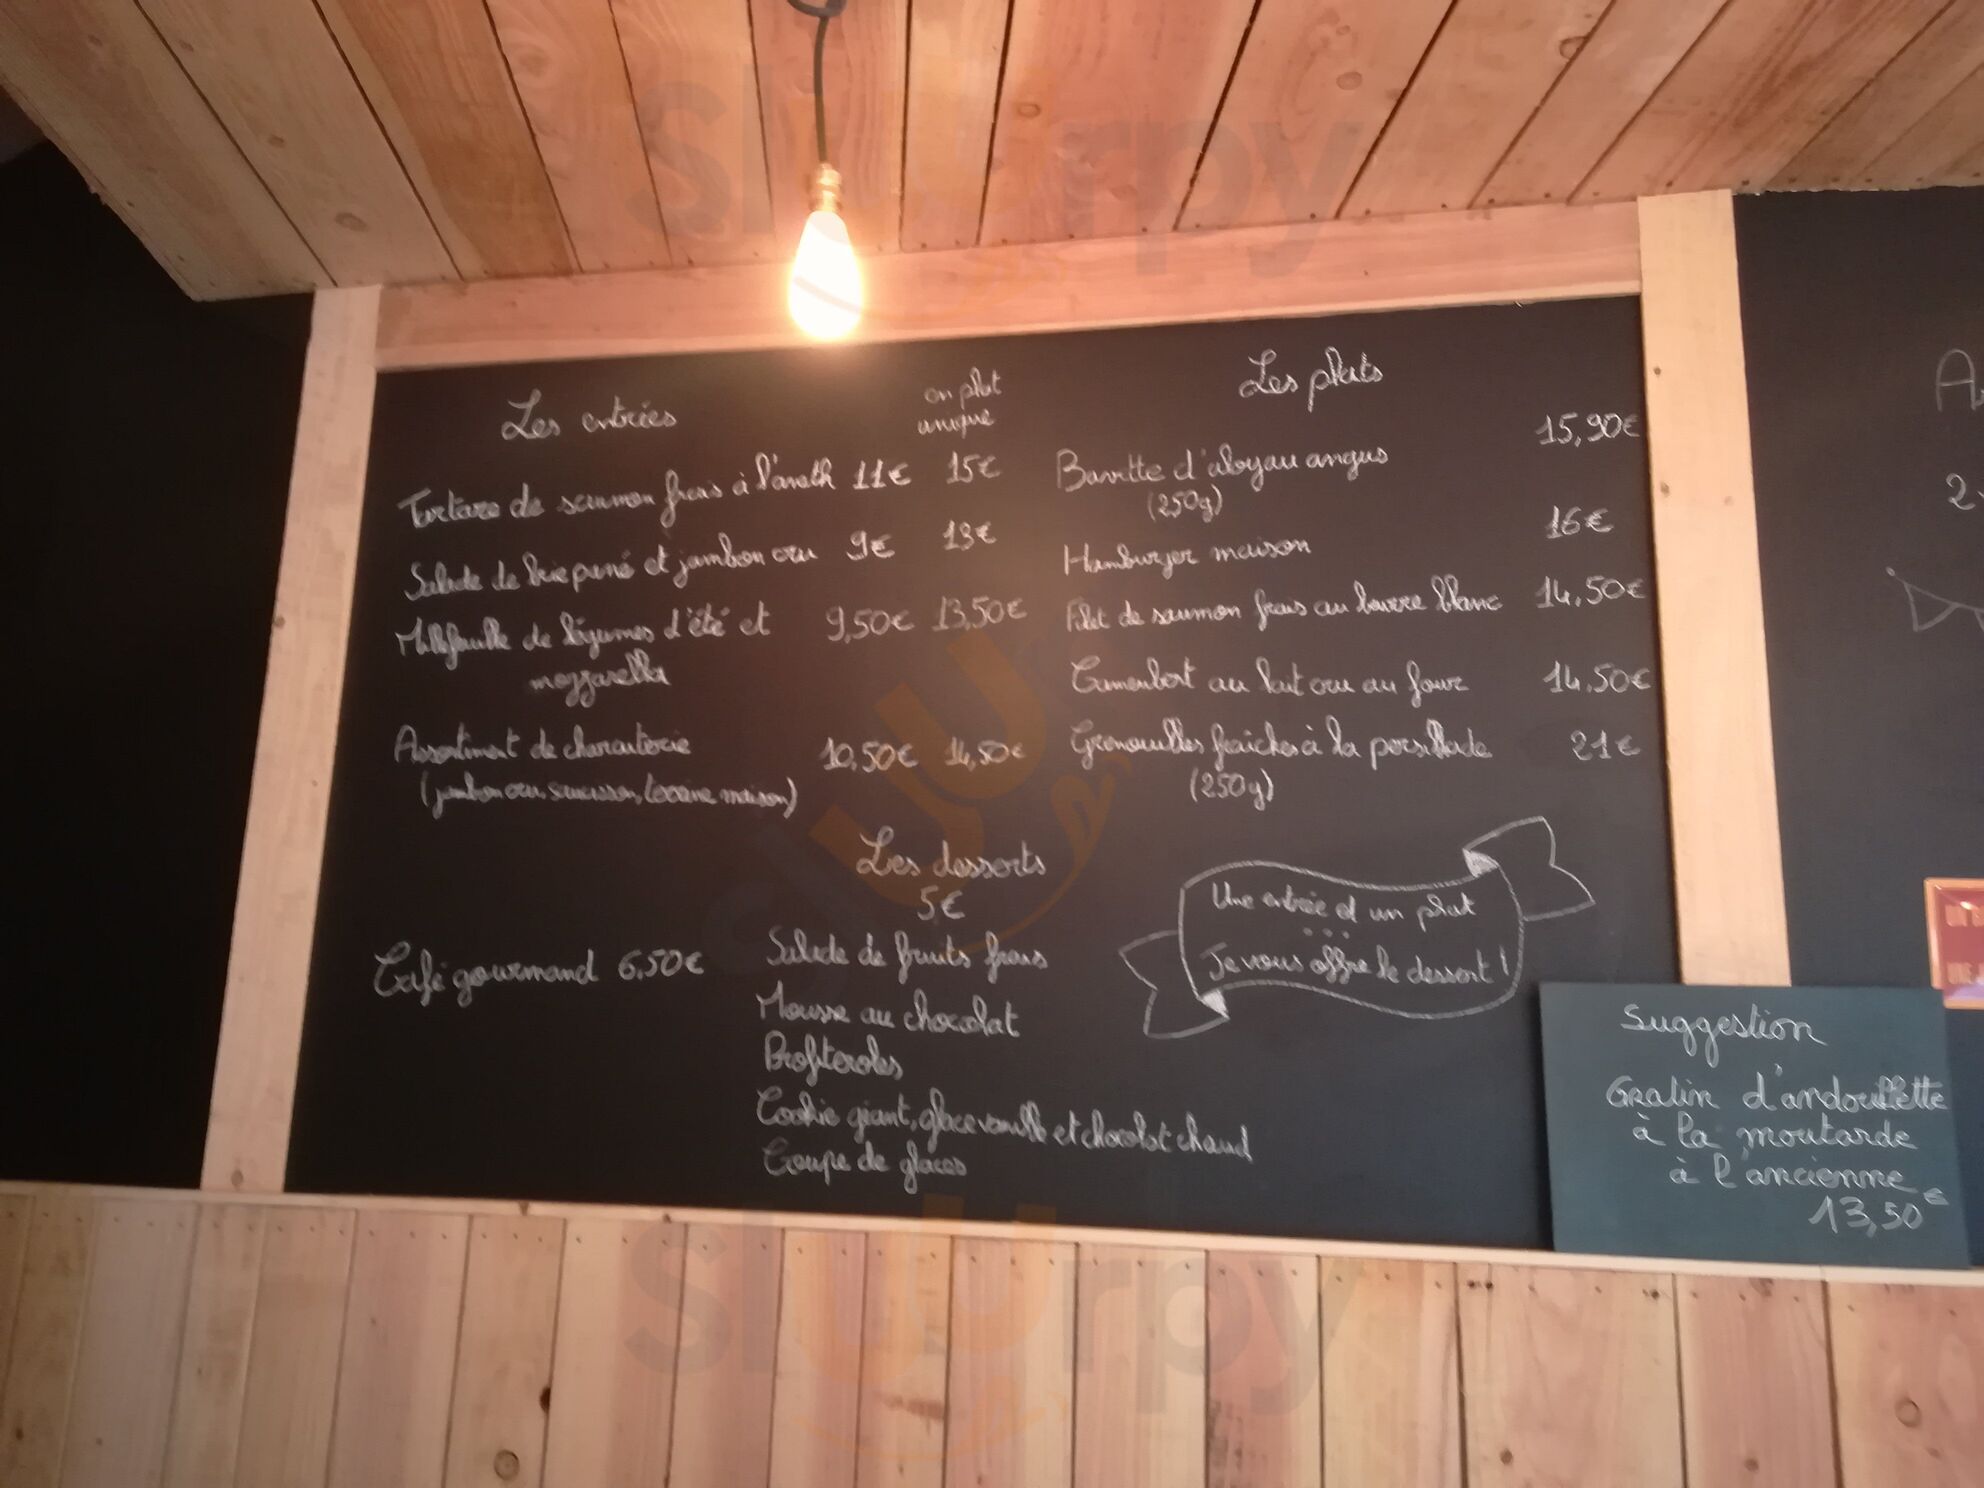 Les entrées
en plat
unique
Tartare de saumon frais à l'aneth 11€ 15€
Salade de brie pané et jambon cru 9€ 13€
Millefeuille de légumes d'été et 9,50€ 13,50€
mozzarella
Assortiment de charcuterie 10,50€ 14,50€
(jambon cru, saucisson, terrine maison)
Les plats
15,90€
Bavette d'aloyau angus
(250g)
Hamburger maison 16€
Filet de saumon frais au beurre blanc 14,50€
Camembert au lait cru au four 14,50€
Grenouilles fraîches à la persillade 21€
(250g)
Les desserts
5€
Café gourmand 6,50€
Salade de fruits frais
Mousse au chocolat
Profiteroles
Cookie géant, glace vanille et chocolat chaud
Coupe de glaces
Une entrée et un plat
...
Je vous offre le dessert !
Suggestion
Gratin d'andouillette
à la moutarde
à l'ancienne
13,50€
slurpy
slurpy